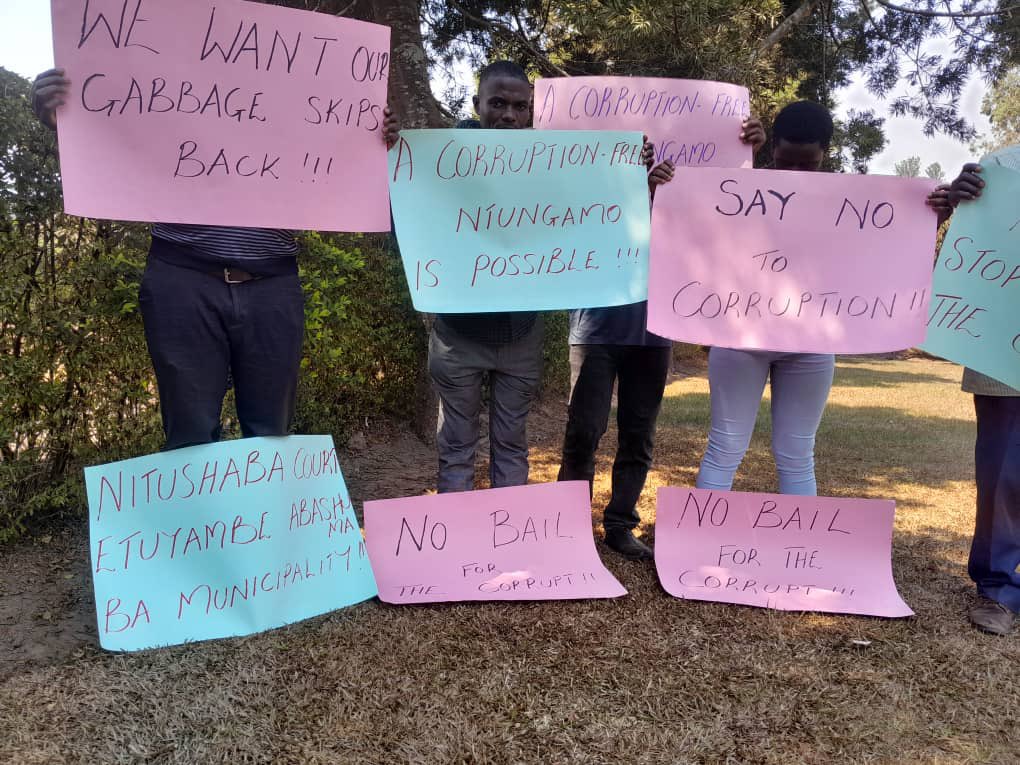 WE WANT OUR
GABBAGE SKIPS
BACK !!!
A CORRUPTION-FREE
NTUNGAMO
IS POSSIBLE !!!
A CORRUPTION-FREE
NGAMO
SAY NO
TO
CORRUPTION !!
STOP
THE
NITUSHABA COURT
ETUYAMBE ABASHUMA
BA MUNICIPALITY !!
NO BAIL
FOR
THE CORRUPT !!
NO BAIL
FOR THE
CORRUPT !!!